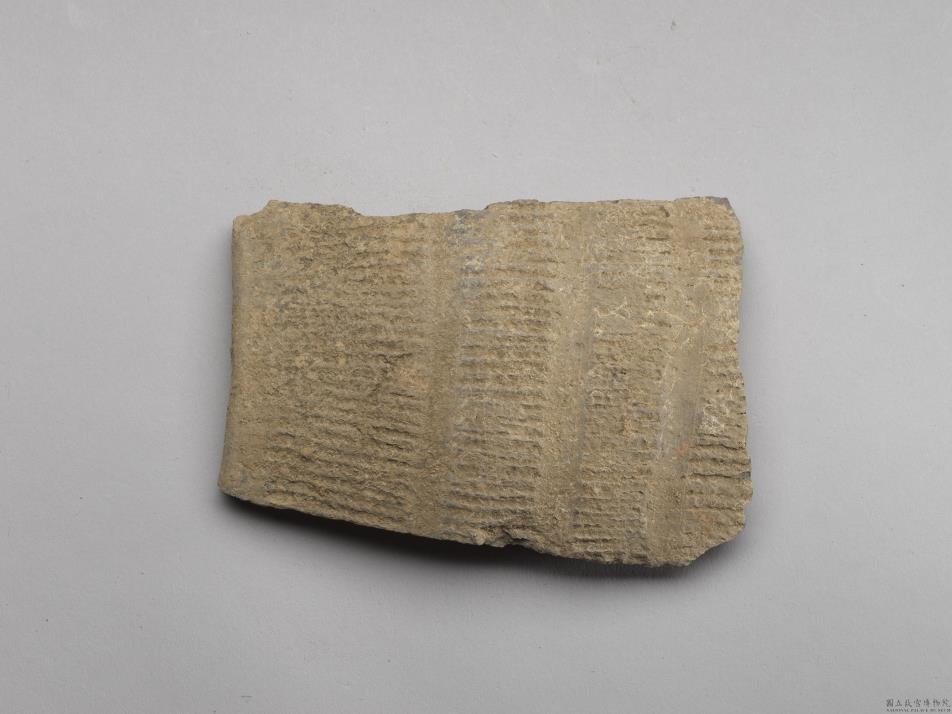 國立故宮博物院
NATIONAL PALACE MUSEUM